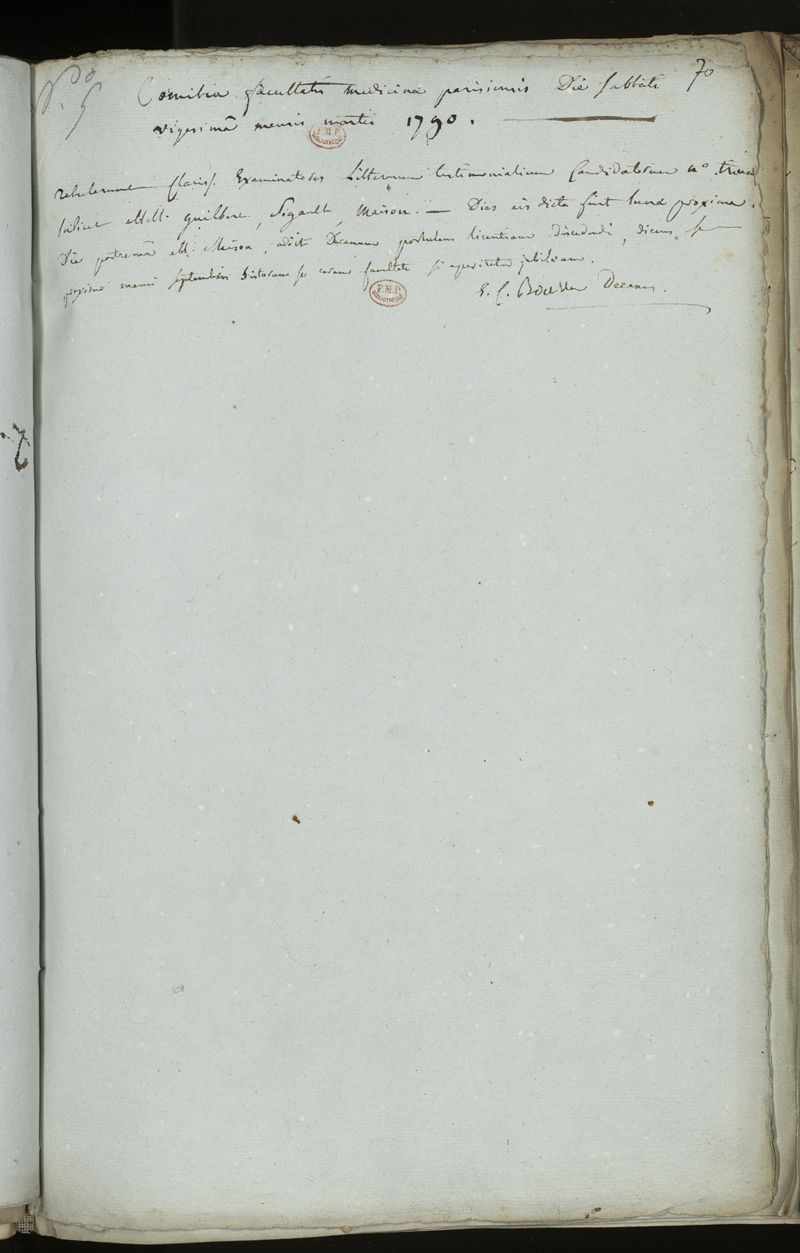 70
N.° 5
Comitia facultatis medicinæ parisiensis Die sabbati
vigesimâ mensis martii 1790.
retulerunt clariss. Examinatores Litterarum testimonialium Candidatorum n°.
scilicet MM. guilbert, Sigault, Maison. — Dies eis dicta fuit hæc proxima.
Die postremâ M. Maison, adiit Decanum postulans licentiam discedendi, dicens se
proximo mensi septembris staturum se coram facultate si aperiretur jubilæum.
Decanus.
F.M.P. BIBLIOTHEQUE
F.M.P. BIBLIOTHEQUE